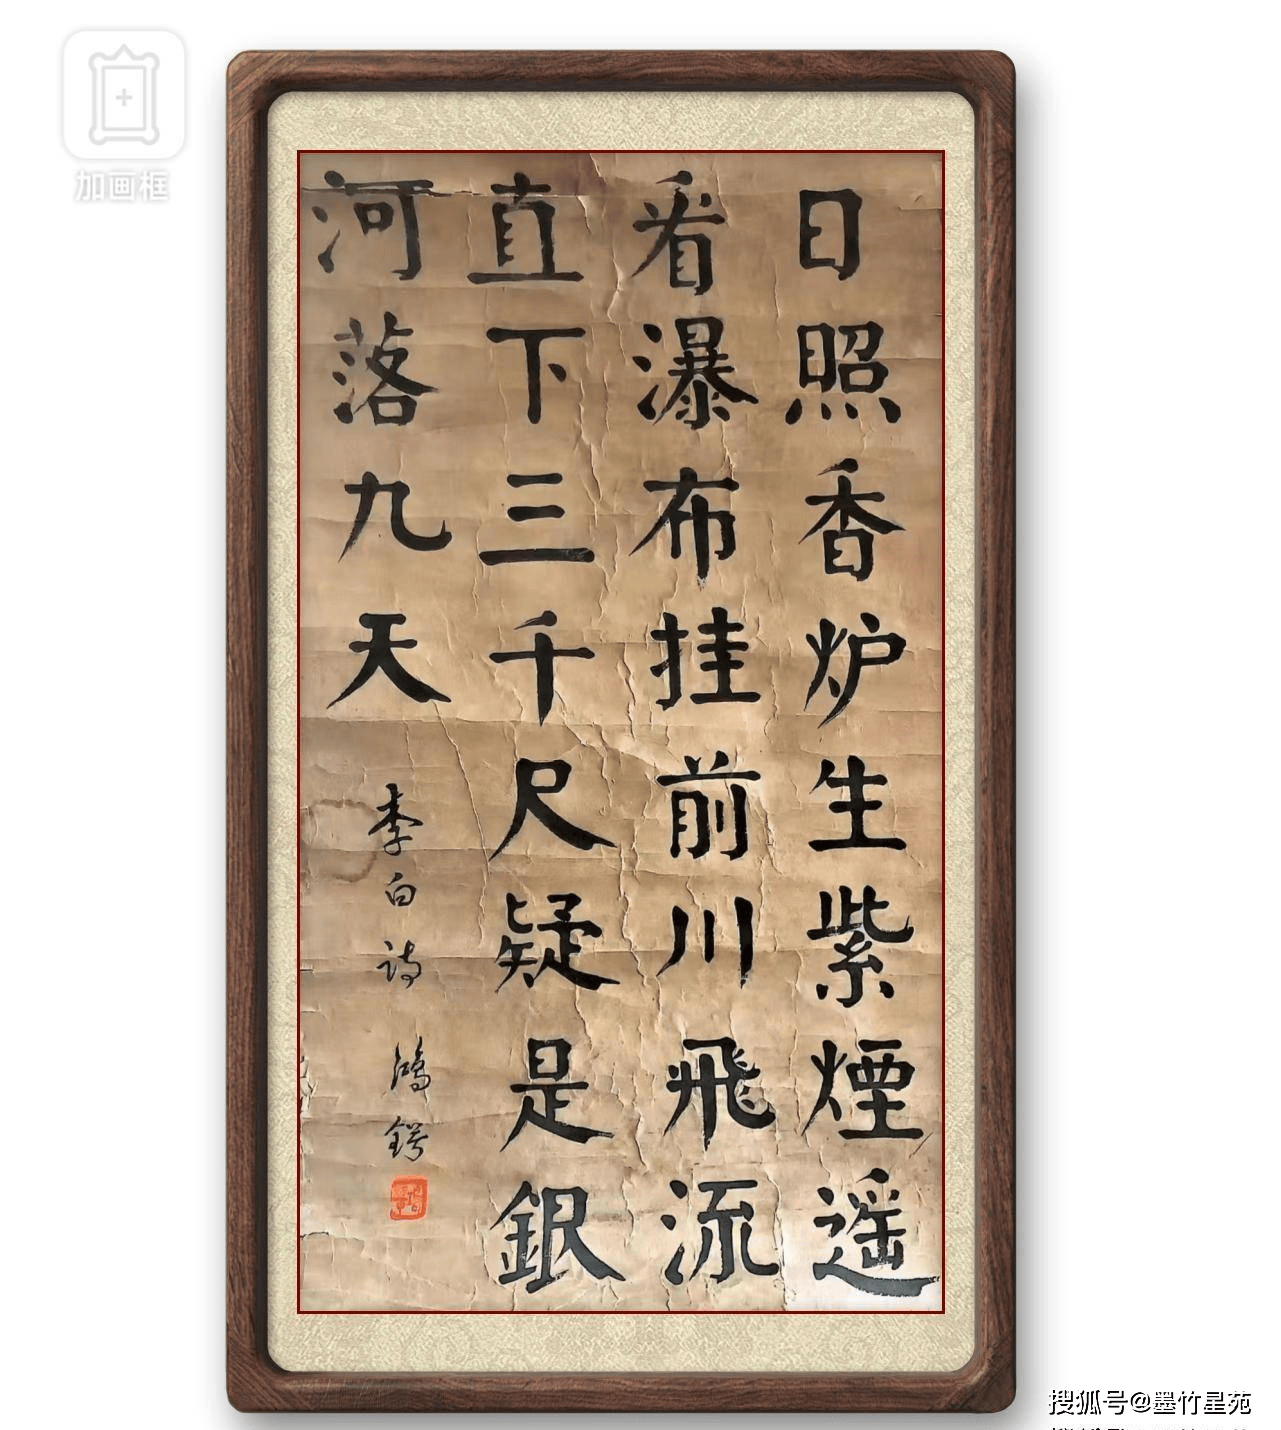 加画框
日照香炉生紫煙遥
看瀑布挂前川飛流
直下三千尺疑是銀
河落九天
李白诗 鴻鍔
搜狐号@墨竹星苑